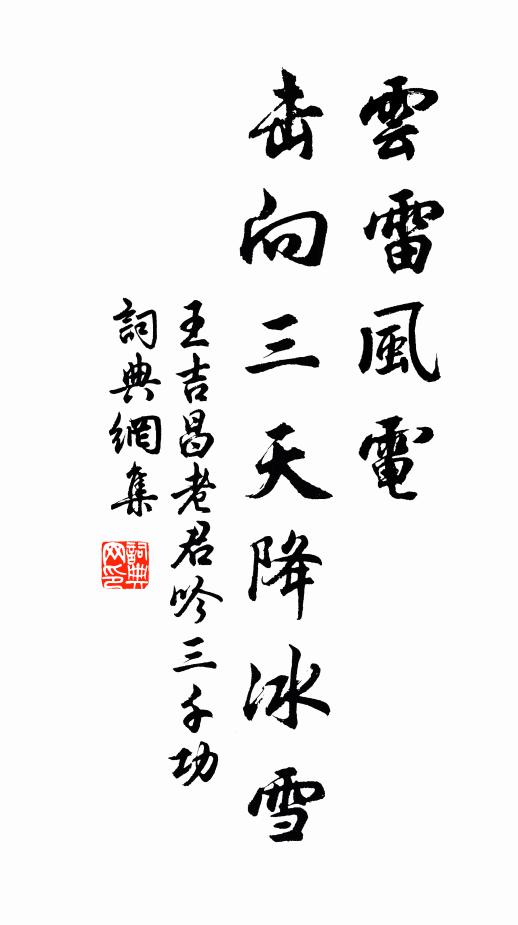 雲雷風電
击向三天降冰雪
王吉昌老君吟三千功
詞典網集
詞典网印